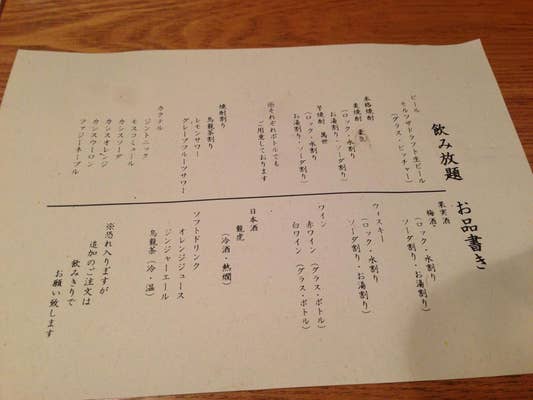 飲み放題 お品書き
ビール
モルツザドラフト生ビール
(グラス・ピッチャー)
本格焼酎
麦焼酎
(ロック・水割り
お湯割り・ソーダ割り)
芋焼酎 萬世
(ロック・水割り
お湯割り・ソーダ割り)
※それぞれボトルでも
ご用意しております
焼酎割り
烏龍茶割り
レモンサワー
グレープフルーツサワー
カクテル
ジントニック
モスコミュール
カシスソーダ
カシスオレンジ
カシスウーロン
ファジーネーブル
果実酒
梅酒
(ロック・水割り
ソーダ割り・お湯割り)
ウィスキー
(ロック・水割り
ソーダ割り・お湯割り)
ワイン
赤ワイン (グラス・ボトル)
白ワイン (グラス・ボトル)
日本酒
龍虎
(冷酒・熱燗)
ソフトドリンク
オレンジジュース
ジンジャーエール
烏龍茶 (冷・温)
※恐れ入りますが
追加のご注文は
飲みきりで
お願い致します